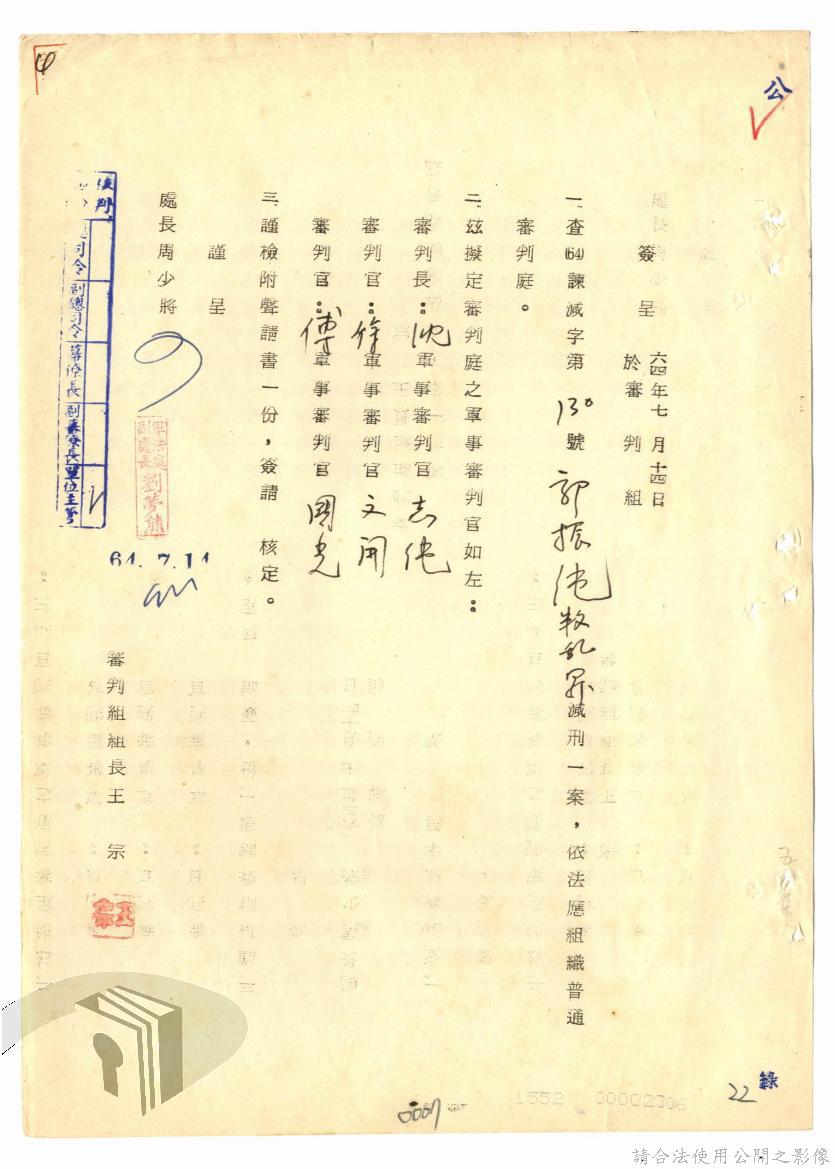 公
簽呈
六四年七月十四日
於審判組
一、查(64)諫減字第130號郭振純叛乱罪減刑一案，依法應組織普通
審判庭。
二、茲擬定審判庭之軍事審判官如左：
審判長：沈軍事審判官志純
審判官：徐軍事審判官文開
審判官：傅軍事審判官國光
三、謹檢附聲請書一份，簽請　核定。
謹呈
處長周少將
軍法處
副處長 劉夢熊
64.7.14
審判組組長王　宗
副總司令
幕僚長
副幕僚長
單位主管
錄
22
1552 00002306
請合法使用公開之影像